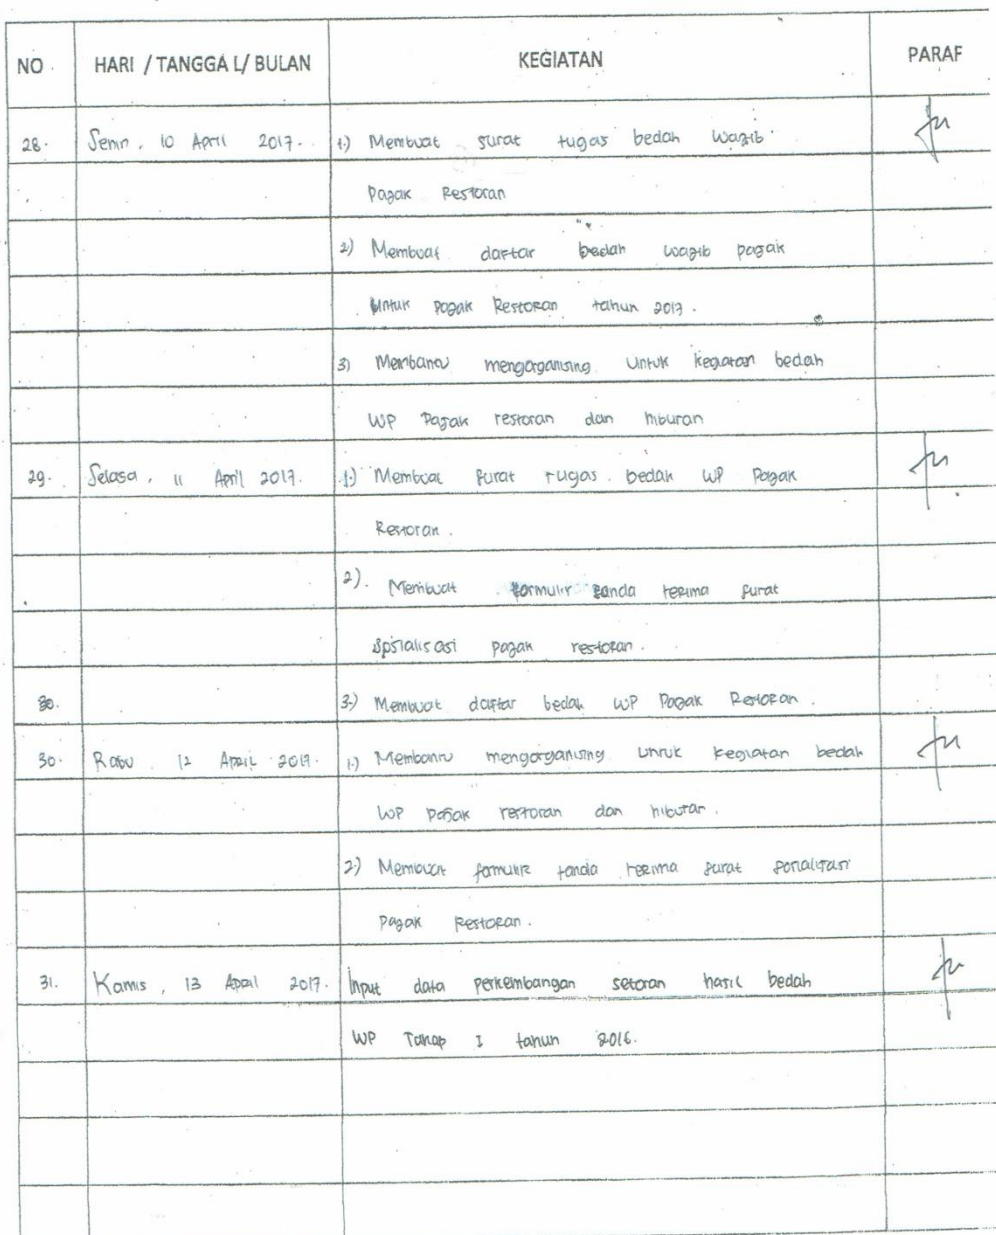 NO. HARI / TANGGAL/ BULAN KEGIATAN PARAF
28. Senin, 10 April 2017. 1.) Membuat surat tugas bedah Wajib
Pajak Restoran
2) Membuat daftar bedah wajib pajak
Untuk pajak Restoran tahun 2017.
3) Membantu mengorganising Untuk kegiatan bedah
WP Pajak restoran dan hiburan
29. Selasa, 11 April 2017. 1.) Membuat surat tugas bedah WP Pajak
Restoran.
2). Membuat formulir tanda terima surat
sosialisasi pajak restoran.
30. 3.) Membuat daftar bedah WP Pajak Restoran.
30. Rabu 12 April 2017. 1.) Membantu mengorganising Untuk kegiatan bedah
WP pajak restoran dan hiburan.
2.) Membuat formulir tanda terima surat sosialisasi
Pajak Restoran.
31. Kamis, 13 April 2017. Input data perkembangan setoran hasil bedah
WP Tahap I tahun 2016.